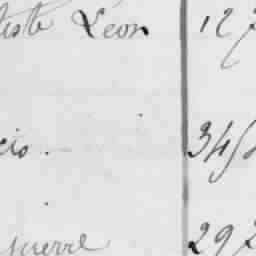 tiste Léon 127
cis. 345
Guerre 292